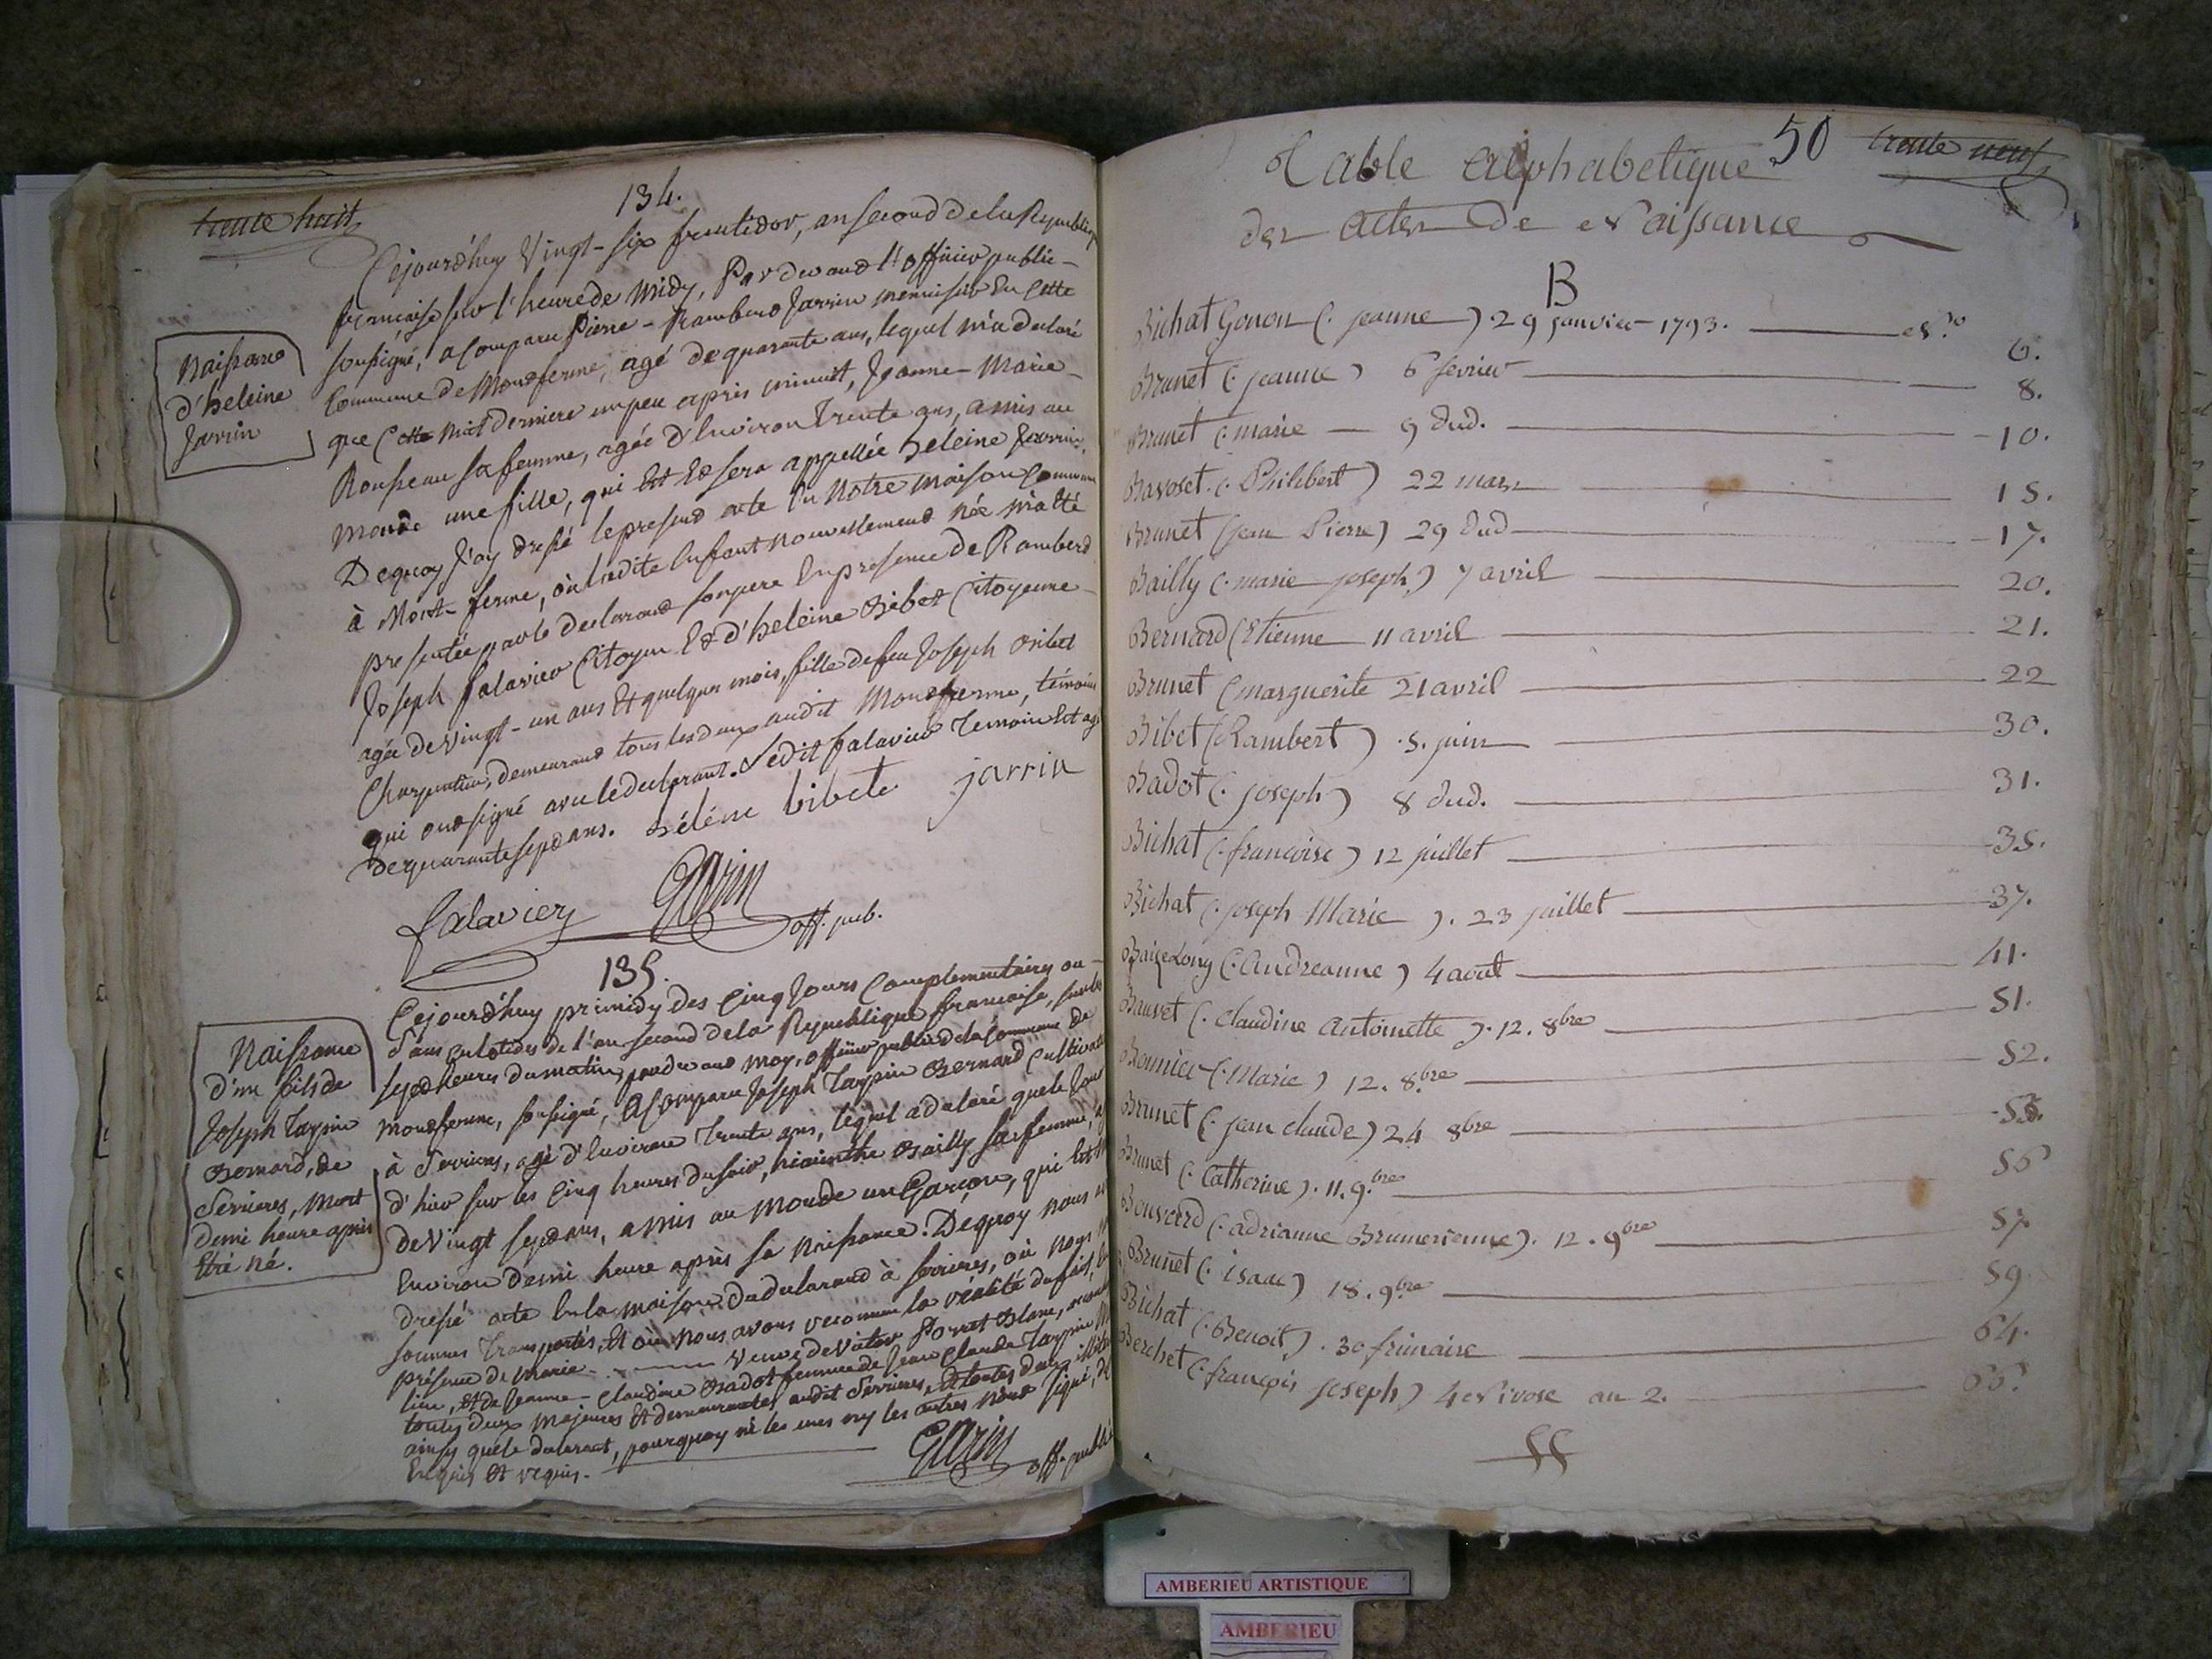 trente huit
134.
Cejourd'huy Vingt-six fructidor, an second de la Republique
francaise sur l'heure de midy, Par devand l'officier public
soussigné, a Comparu Pierre-Rambert Jarrin menuisier En cette
Commune de Montferme, agé de quarante ans, lequel m'a declaré
que Cette nuit derniere un peu après minuit, Jeanne-Marie
Rousseau sa femme, agée d'Environ Trente ans, a mis au
monde une fille, qui Est Et sera appellée heleine Jarrin.
Dequoy j'ay dressé le present acte En Notre maison Commune
à Mont-ferme, où ladite Enfant nouvellement née m'a Eté
presentée par le declarant son pere En presence de Ramberd
Joseph falavier Citoyen Et d'heleine Bibet Citoyenne
agée de Vingt-un ans Et quelques mois, fille de feu Joseph Bibet
Charpentier, demeurans tous les deux audit Montferme, témoins
qui ont signé avec le declarant. Ledit falavier Temoin Est agé
de quarante sept ans. hélène bibete jarrin
falavier Garin off. pub.
Naissance
d'heleine
Jarrin
135.
Cejourd'huy primidy des Cinq Jours Complementaires ou
Sans culotides de l'an second de la Republique francaise, sur les
sept heures du matin, pardevand moy, officier public de la Commune de
Montferme, soussigné, a Comparu Joseph Taypin Bernard Cultivateur
à Serrieres, agé d'Environ Trente ans, lequel a declaré que le Jour
d'hier sur les Cinq heures du soir, hiacinthe Bailly sa femme,
de Vingt sept ans, a mis au Monde un Garçon, qui Est
Environ demi heure après sa Naissance. Dequoy nous
dressé acte En la maison du declarand à Serrieres, où nous
sommes Transportés, Et où Nous avons reconnu la réalité du fait,
présence de Marie - Veuve de Victor Pernet Blanc,
lieu, Et de Jeanne-Claudine Badot femme de Jean Claude Taypin
toutes deux majeures Et demeurantes audit Serrieres, Et toutes deux
ainsy que le declarant, pourquoy ni les unes ny les autres n'ont signé, de
Enquis Et requis.
Garin off. public
Naissance
d'un fils de
Joseph Taypin
Bernard, de
Serrieres, Mort
demi heure après
Etre né.
50 trente neuf
Table Alphabetique
des Actes De Naissance
B
Bichat Gonon (: jeanne ) 29 janvier 1793. N.º 6.
Brunet (: jeanne ) 6 fevrier 8.
Brunet (: marie 9 dud. 10.
Bavoset (: Philibert ) 22 mars 15.
Brunet (jean Pierre) 29 dud 17.
Bailly (: marie joseph ) 7 avril 20.
Bernard (Etienne 11 avril 21.
Brunet (marguerite 21 avril 22
Bibet (Rambert ) 5. juin 30.
Badot (: joseph ) 8 dud. 31.
Bichat (: francoise ) 12 juillet 35.
Bichat (: joseph Marie ). 23 juillet 37.
(: Andreanne ) 4 aout 41.
Bauvet (: Claudine Antoinette ). 12. 8bre 51.
(: Marie ) 12. 8bre 52.
Brunet (: jean claude ) 24 8bre
Brunet (: Catherine ). 11. 9bre
Bouvard (: adrianne Brumerienne ). 12. 9bre 57.
Brunet (: isaac ) 18. 9bre 59.
Bichat (: Benoit ). 30 frimaire 64.
Berchet (: françois joseph ) 4 Nivose an 2.
AMBERIEU ARTISTIQUE
AMBERIEU